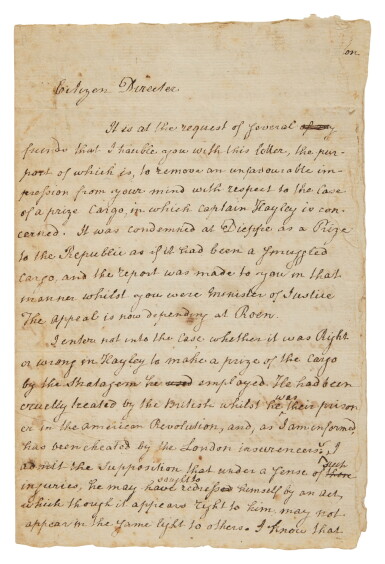 on
Citizen Director
It is at the request of several of my
friends that I trouble you with this letter, the pur-
port of which is, to remove an unfavourable im-
pression from your mind with respect to the Case
of a prize Cargo, in which captain Hayley is con-
cerned. It was condemned at Dieppe as a Prize
to the Republic as if it had been a smuggled
Cargo, and the report was made to you in that
manner whilst you were Minister of Justice
The Appeal is now depending at Roen.
I enter not into the Case whether it was Right
or wrong in Hayley to make a prize of the Cargo
by the Stratagem he used employed. He had been
cruelly treated by the British whilst he was their prison
er in the american Revolution, and, as I am informed,
has been cheated by the London insurencers. I
admit the Supposition that under a sense of those Such
injuries, he may have sought to redressed himself by an act,
which though it appears right to him may not
appear in the same light to others. I know that